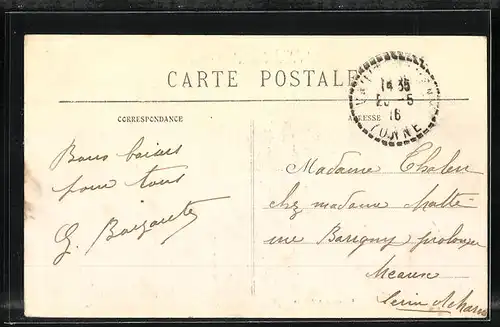 CARTE POSTALE
CORRESPONDANCE
ADRESSE
14 35
5
16
YONNE
Bons baisers
pour tous
G.
Madame Thalen
chez madame Matté
rue Barigny prolongée
Meaux
Seine et Marne